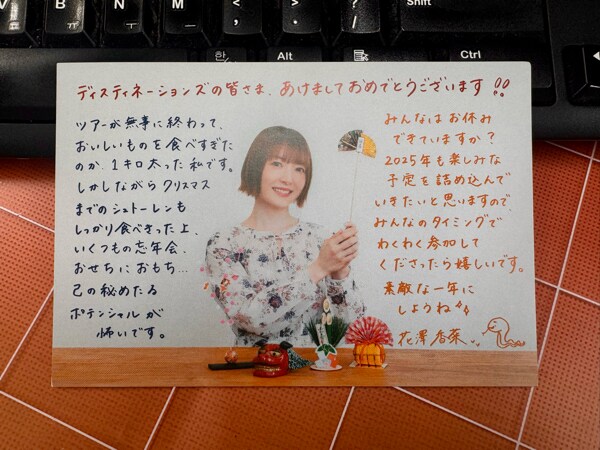 B
ㅠ
N
M
ㅡ
<
,
>
.
?
/
Shift
한/
Alt
Ctrl
ディスティネーションズの皆さま、あけましておめでとうございます!!
ツアーが無事に終わって、
おいしいものを食べすぎた
のか、1キロ太った私です。
しかしながらクリスマス
までのシュトーレンも
しっかり食べきった上、
いくつもの忘年会、
おせちにおもち…
己の秘めたる
ポテンシャルが
怖いです。
みんなはお休み
できていますか?
2025年も楽しみな
予定を詰め込んで
いきたいと思いますので
みんなのタイミングで
わくわく参加して
くださったら嬉しいです。
素敵な一年に
しようね
花澤香菜